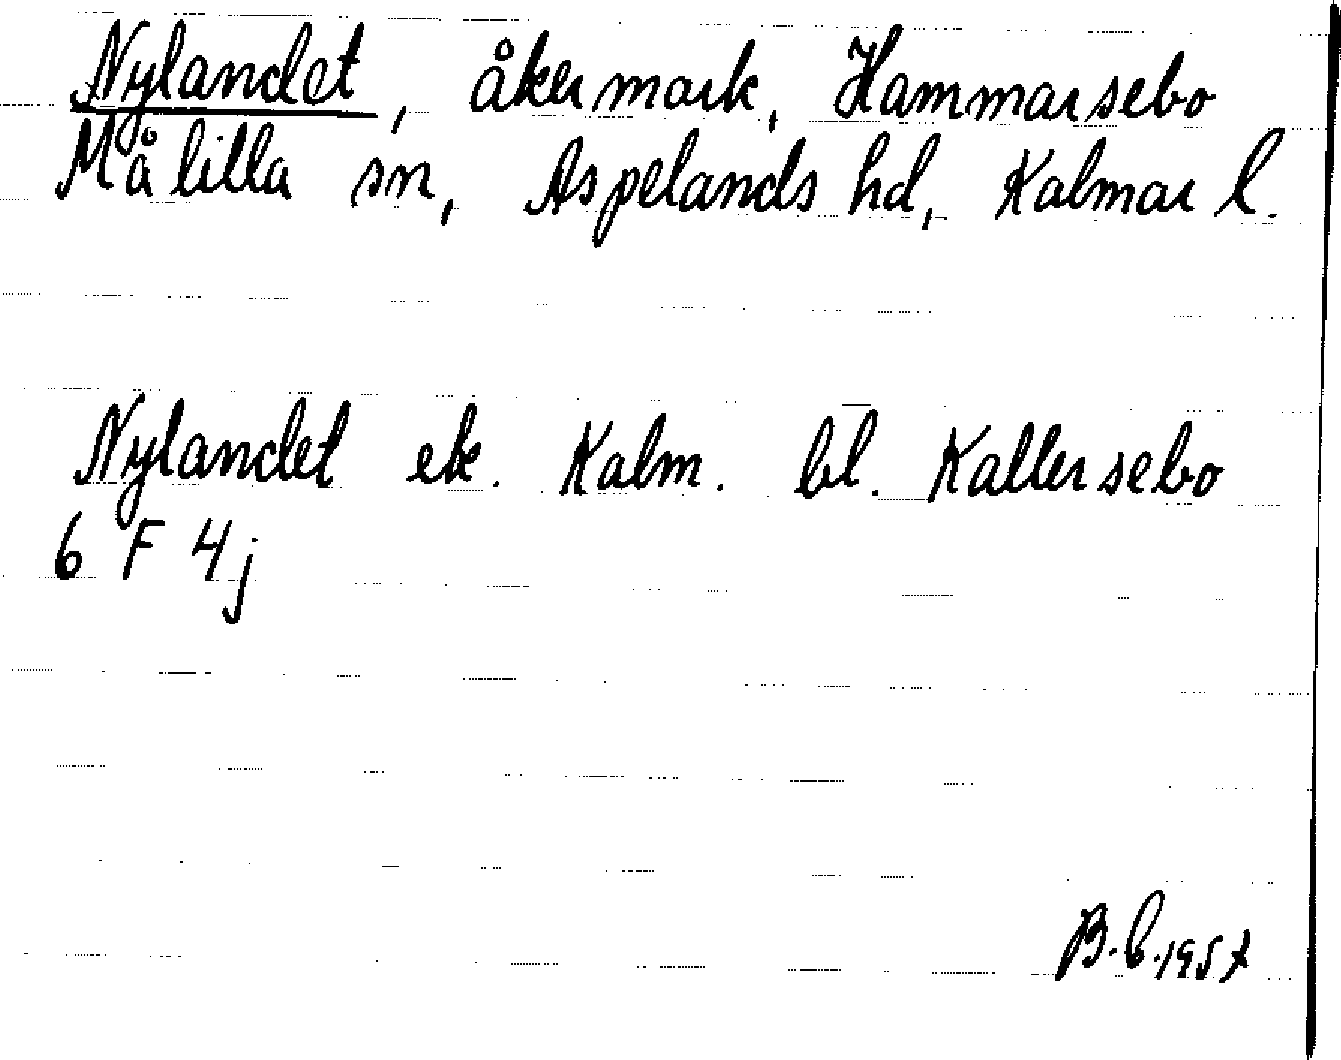 Nylandet, åkermark, Hammarsebo
Målilla sn, Aspelands hd, Kalmar l.
Nylandet ek. Kalm. bl. Kallersebo
6 F 4j
B.C.1957